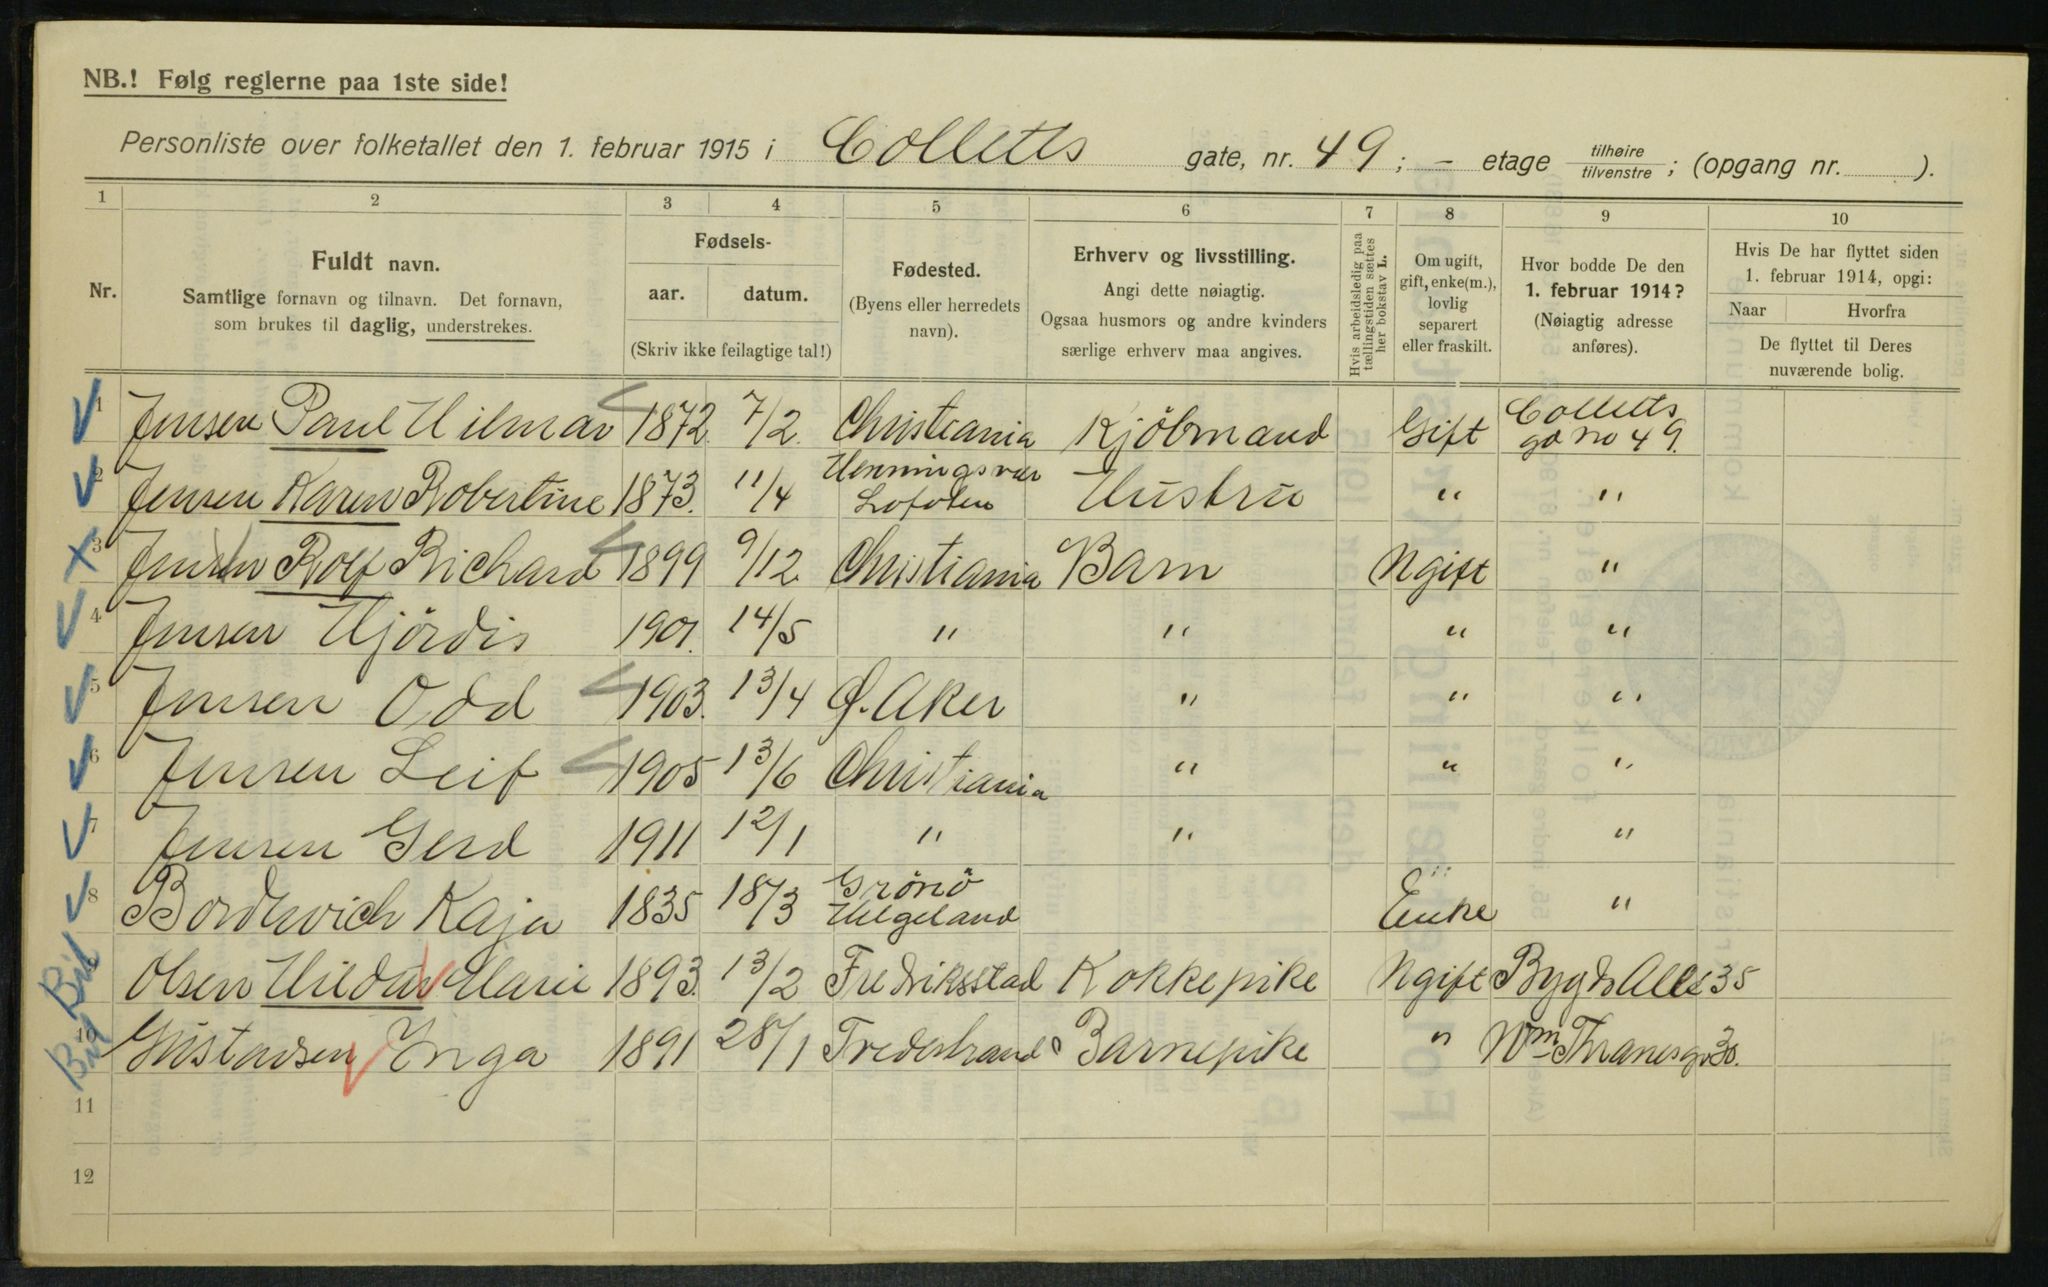 NB.! Følg reglerne paa 1ste side!
Personliste over folketallet den 1. februar 1915 i Colletts gate, nr. 49; – etage tilhøire/tilvenstre; (opgang nr. ).
1 2 3 4 5 6 7 8 9 10
Nr.
Fuldt navn.
Samtlige fornavn og tilnavn. Det fornavn,
som brukes til daglig, understrekes.
Fødsels-
aar. datum.
(Skriv ikke feilagtige tal!)
Fødested.
(Byens eller herredets
navn).
Erhverv og livsstilling.
Angi dette nøiagtig.
Ogsaa husmors og andre kvinders
særlige erhverv maa angives.
Hvis arbeidsledig paa
tællingstiden sættes
her bokstav L.
Om ugift,
gift, enke(m.),
lovlig
separert
eller fraskilt.
Hvor bodde De den
1. februar 1914?
(Nøiagtig adresse
anføres).
Hvis De har flyttet siden
1. februar 1914, opgi:
Naar Hvorfra
De flyttet til Deres
nuværende bolig.
1 Jensen Paul Hilmar 1872. 7/2. Christiania Kjöbmand Gift Colletts gd no 49.
2 Jensen Karen Robertine 1873. 11/4 Henningsvær Lofoten Hustru " "
3 Jensen Rolf Richard 1899 9/12 Christiania Barn Ugift "
4 Jensen Hjördis 1901. 14/5 " " " "
5 Jensen Odd 1903. 13/4 Ø. Aker " " "
6 Jensen Leif 1905 13/6 Christiania " " "
7 Jensen Gerd 1911 12/1 " " "
8 Bordewich Kaja 1835 18/3 Grönö Helgeland Enke "
9 Olsen Hildur Marie 1893. 13/2 Fredriksstad Kokkepike Ugift Bygdø Alle 35
10 Gustavsen Inga 1891 28/1 Tvedestrand Barnepike " Wm Thranesgd 30.
11
12